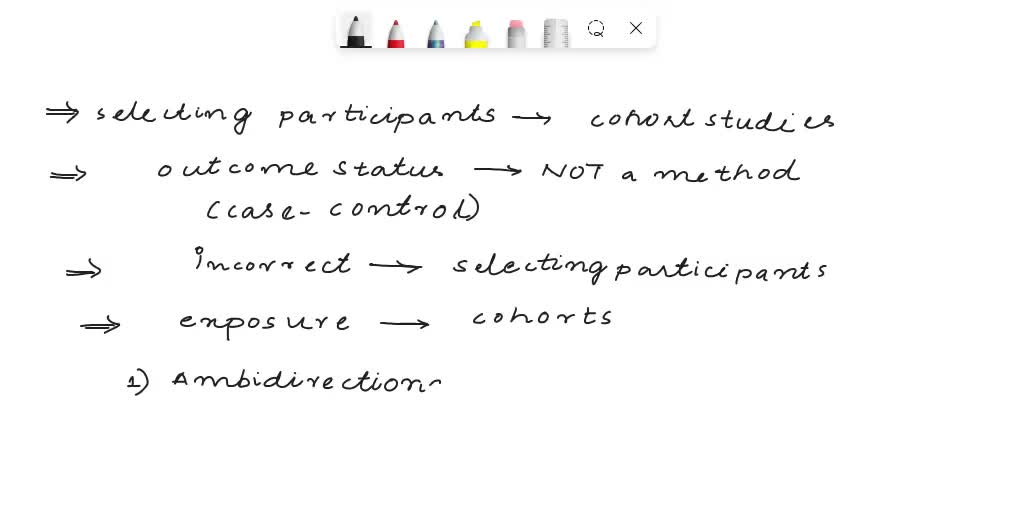 ⇒ selecting participants → cohort studies
⇒ outcome status → NOT a method
(case-control)
⇒ incorrect → selecting participants
⇒ exposure → cohorts
1) Ambidirection